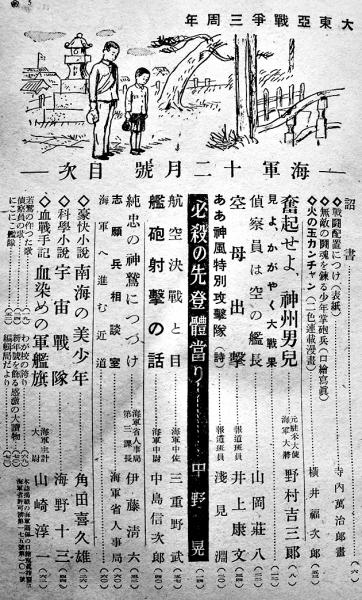 大東亞戰爭三周年
海軍十二月號目次
詔書
◇戰鬪配置につけ(表紙)………寺内萬治郎畫
◇無敵の鬪魂を錬る少年掌砲兵(口繪寫眞)
◇火の玉カンチャン(二色連載漫畫)………橫井福次郎
奮起せよ、神州男兒………元駐米大使 海軍大將 野村吉三郎
見よ、かがやく大戰果
偵察員は空の艦長………山岡莊八
空母出擊………報道班員 井上康文
ああ神風特別攻擊隊(詩)………報道班員 淺見淵
必殺の先登體當り………中野晃
航空決戰と目………海軍中佐 三重野武
艦砲射擊の話………海軍中尉 中島信次郎
純忠の神鷲につづけ………海軍省人事局 第三課長 伊藤清六
志願兵相談室
海軍へ進む近道………海軍省人事局
◇豪快小說 南海の美少年………角田喜久雄
◇科學小說 宇宙戰隊………海野十三
◇血戰手記 血染めの軍艦旗………海軍主計大尉 山崎淳一
若鷲の作つた歌
偵察員の歌
にこにこ艦隊
わが校の誇り
新年號を飾る感激の大讀物
編輯局だより